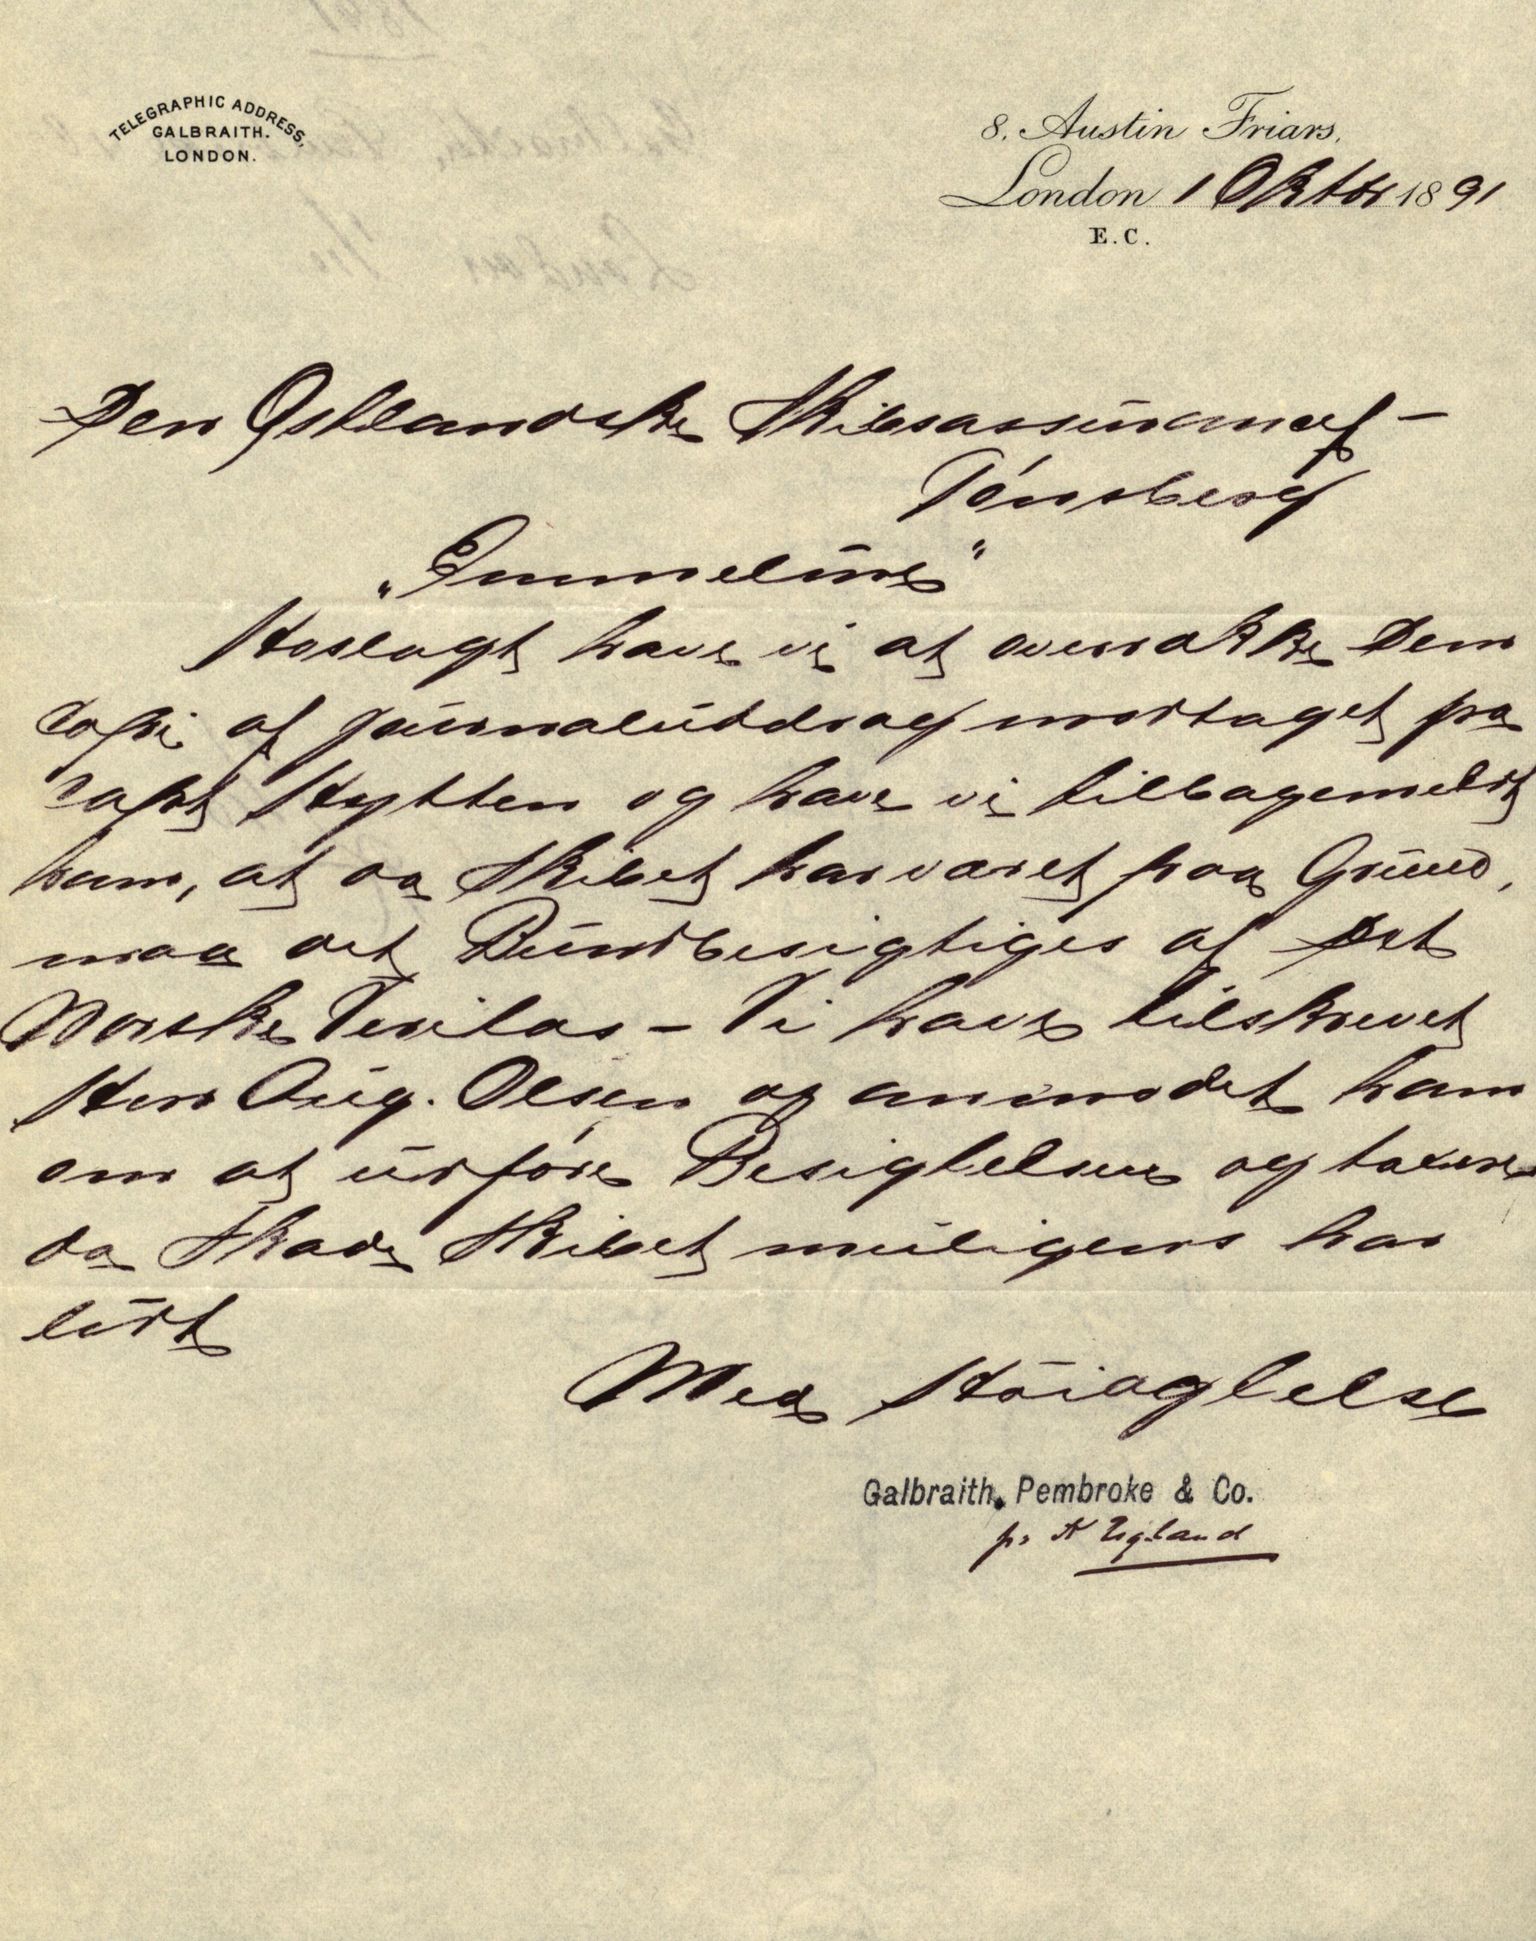 TELEGRAPHIC ADDRESS,
GALBRAITH.
LONDON.
8, Austin Friars,
London 1 Oktbr 1891
E.C.
Den Østlandske Skibsassurancef-
Tönsberg
„Emmeline"
Hoslagt have vi at overrække Dem
Copi af Journaluddrag modtaget fra
Capt Hytten og have vi tilbagemeldt
ham, at da Skibet har været paa Grund,
maa det Bundbesigtiges af Det
Norske Veritas - Vi have tilskrevet
Herr Aug. Olsen og anmodet ham
om at udföre Besigtelsen og taxere
da Skade Skibet muligens har
lidt
Med Höiagtelse
Galbraith, Pembroke & Co.
pr A Ugland